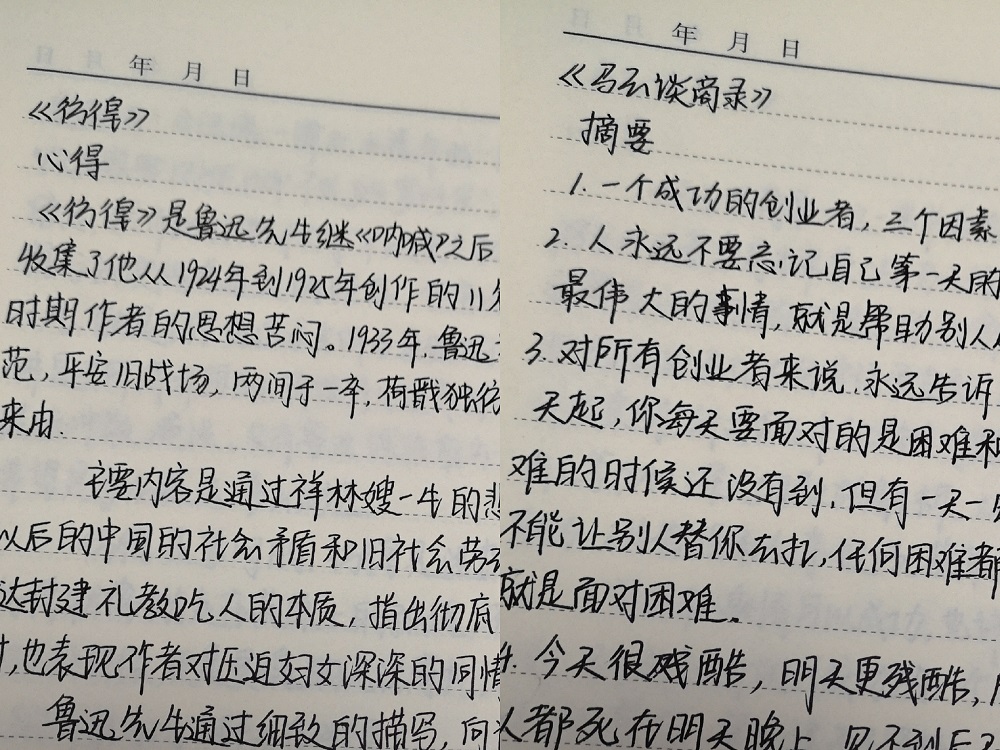 年 月 日
《彷徨》
心得
《彷徨》是鲁迅先生继《呐喊》之后
收集了他从1924年到1925年创作的11
时期作者的思想苦闷。1933年,鲁迅
范,平安旧战场,两间于一卒,荷戟独彷
来由.
主要内容是通过祥林嫂一生的悲
以后的中国的社会矛盾和旧社会劳
达封建礼教吃人的本质,指出彻底
时,也表现作者对压迫妇女深深的同情
鲁迅先生通过细致的描写,向
年 月 日
《马云谈商录》
摘要
1. 一个成功的创业者,三个因素
2. 人永远不要忘记自己第一天的
最伟大的事情,就是帮助别人
3. 对所有创业者来说,永远告诉
天起,你每天要面对的是困难和
难的时候还没有到,但有一天一
不能让别人替你去扛,任何困难都
就是面对困难.
4. 今天很残酷,明天更残酷,
人都死在明天晚上,见不到后